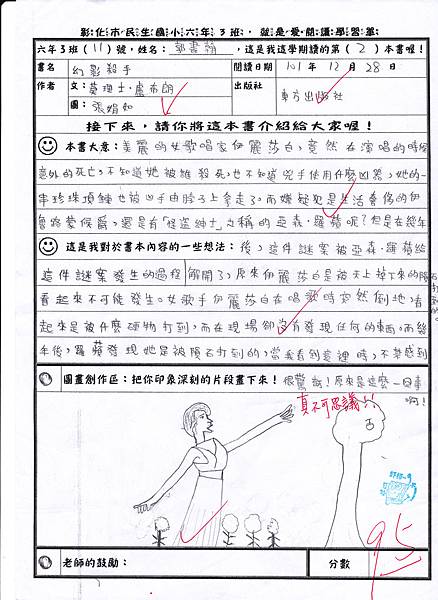 彰化市民生國小六年3班，就是愛閱讀學習單
六年3班(11)號，姓名：郭書翰，這是我這學期讀的第(2)本書喔！
書名 幻影殺手 閱讀日期 101年12月28日
作者 文：莫理士．盧布朗 出版社 東方出版社
圖：張娟如
接下來，請你將這本書介紹給大家喔！
本書大意：美麗的女歌唱家伊麗莎白，竟然在演唱的時候
意外的死亡，不知道她被誰殺死，也不知道兇手使用什麼凶器，她的一
串珍珠項鍊也被凶手由脖子上拿走了。而嫌疑犯是生活奢侈的伊
魯路蒙侯爵，還是有「怪盜紳士」之稱的亞森．羅蘋呢？但是在幾年
這是我對於書本內容的一些想法：後，這件謎案被亞森．羅蘋給
這件謎案發生的過程 解開了，原來伊麗莎白是被天上掉下來的隕
石打到的。
看起來不可能發生。女歌手伊麗莎白在唱歌時突然倒地，看
起來是被什麼硬物打到，而在現場卻沒有發現任何的東西，而幾
年後，羅蘋發現她是被隕石打到的，當我看到這裡時，不禁感到
圖畫創作區：把你印象深刻的片段畫下來！ 很驚訝！原來是這麼一回事
啊！
真不可思議！！
老師的鼓勵： 分數 95